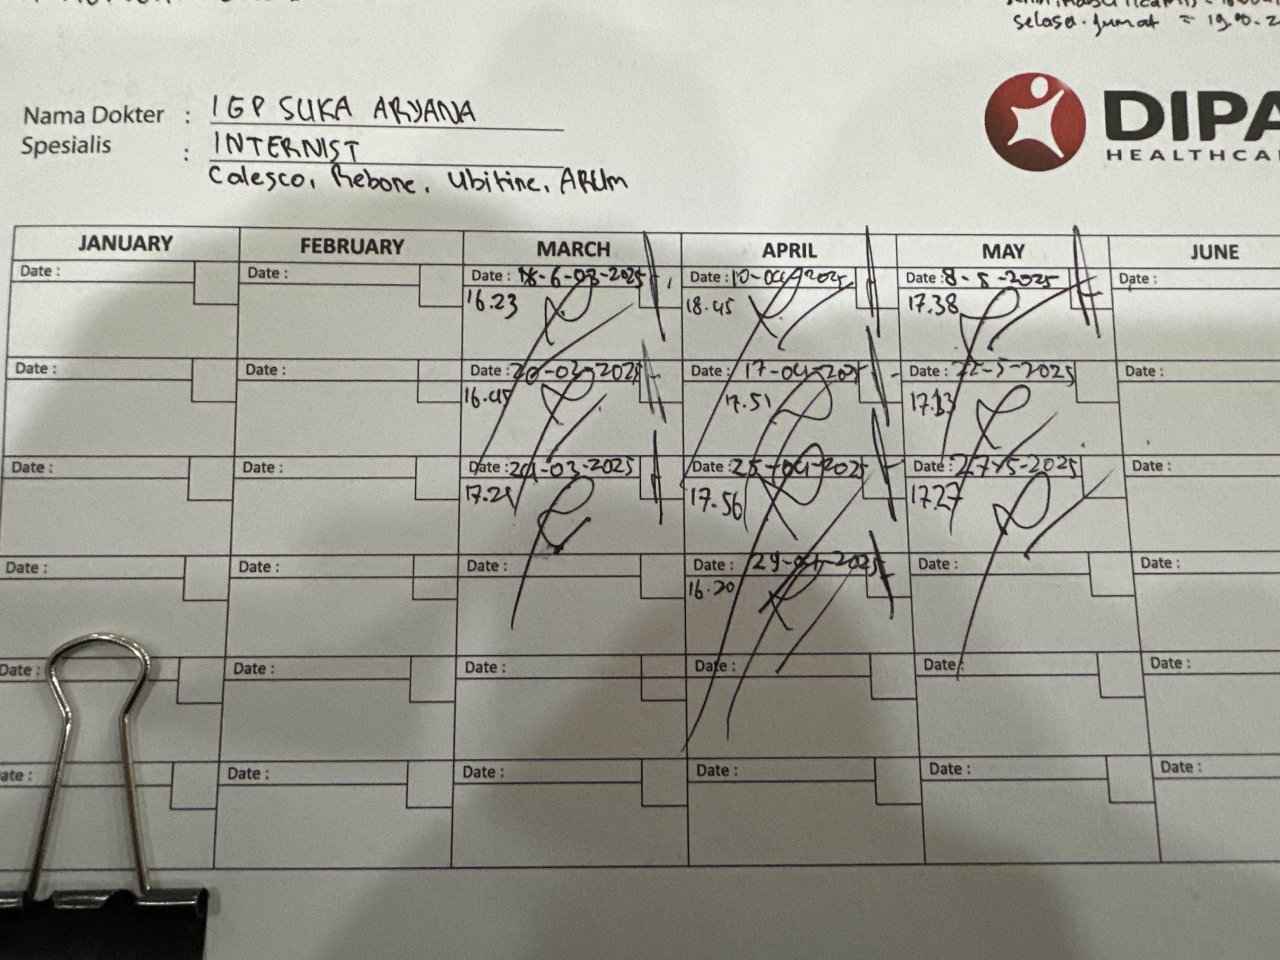 selasa. Jumat = 19.00-2
Nama Dokter : IGP SUKA ARYANA
Spesialis : INTERNIST
Calesco, Rebone, Ubitine, ARUM
DIPA
HEALTHCA
JANUARY FEBRUARY MARCH APRIL MAY JUNE
Date : Date : Date : 6-03-2025 Date : 10-04-2025 Date : 8-5-2025 Date :
16.23 18.45 17.38
Date : Date : Date : 20-03-2025 Date : 17-04-2025 Date : 22-5-2025 Date :
16.45 17.51 17.13
Date : Date : Date : 24-03-2025 Date : 25-04-2025 Date : 27-5-2025 Date :
17.21 17.56 17.27
Date : Date : Date : Date : 29-04-2025 Date : Date :
16.20
Date : Date : Date : Date : Date : Date :
ate : Date : Date : Date : Date : Date :